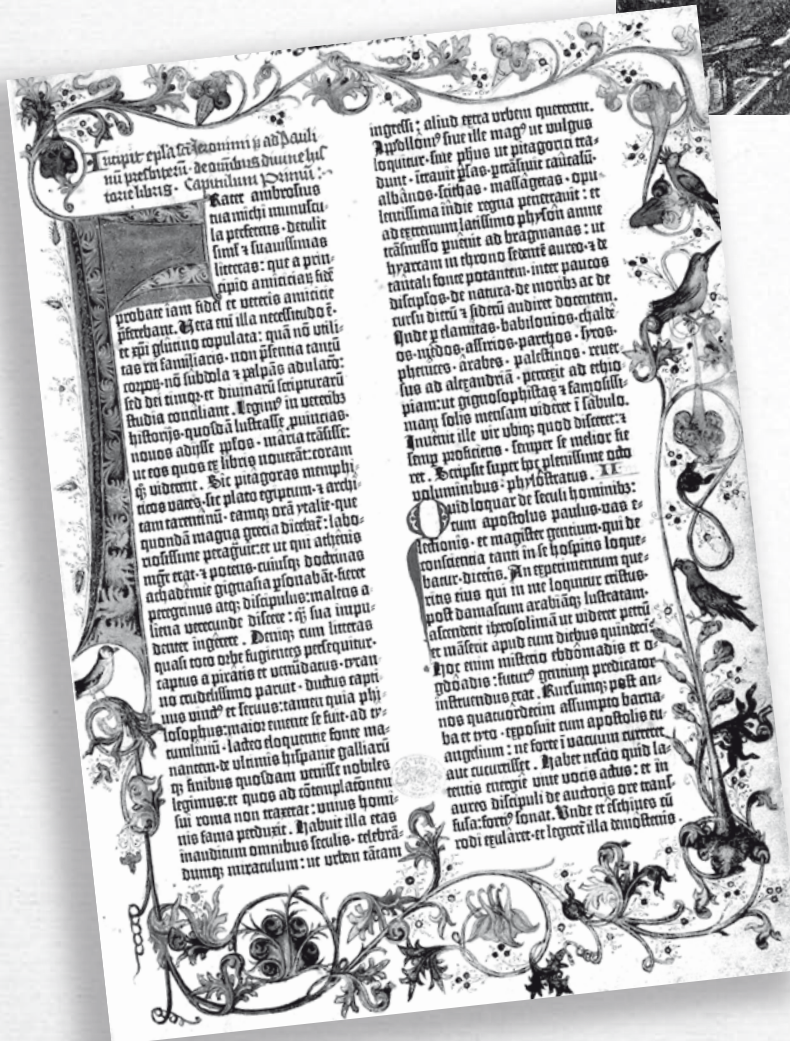 Incipit epl̃a sc̃i Jeronimi p̄ ad Pauli
nũ presbiterũ · de om̄ibus diuine his
torie libris · Capitulum Primũ :
Frater ambrosius
tua michi munuscu-
la perferens · detulit
sim̃l ⁊ suauissimas
litteras : que a prin-
cipio amiciciarũ fidẽ
probate iam fidei et veteris amicicie
p̃ferebant. Vera em̃ illa necessitudo ẽ·
et xp̃i glutino copulata : quã nõ vtili-
tas rei familiaris · non p̃sentia tantũ
corporũ· nõ subdola ⁊ palpãs adulatõ:
sed dei timor· et diuinarũ scripturarũ
studia conciliant. Legim⁹ in veteribꝫ
historijs· quosdã lustrasse puincias·
nouos adijsse pp̃los · maria trãsisse:
ut eos quos ex libris nouerãt: coram
qꝫ viderent. Sic pitagoras memphi-
ticos vates· sic plato egiptum· ⁊ archi-
tam tarentinũ· eamqꝫ orã ytalie· que
quondã magna grecia dicebat̃ : labo-
riosissime peragrauit: et ut qui athenis
mgr̃ erat· ⁊ potens· cuiusqꝫ doctrinas
achademie gignasia psonabãt· fieret
peregrinus atqꝫ discipulus: malens a-
liena verecunde discere: qꝫ sua impu-
denter ingerere. Deniqꝫ cum litteras
quasi toto orbe fugientes persequitur·
captus a piratis et venũdatus· tyran
no crudelissimo paruit · ductus capti-
uus vinct⁹ et seruus: tamen quia phi-
losophus: maior emente se fuit· ad ty-
tumliuiũ · lacteo eloquentie fonte ma-
nantem· de vltimis hispanie galliarũ
qꝫ finibus quosdam venisse nobiles
legimus: et quos ad cõtemplacõnem
sui roma non traxerat: vnius homi-
nis fama perduxit. Habuit illa etas
inauditum omnibus seculis· celebrã-
dumqꝫ miraculum: ut vrbem tãtam
ingressi: aliud extra vrbem quererent.
Apolloni⁹ siue ille mag⁹ ut vulgus
loquitur· siue ph̃us ut pitagorici tra-
dunt · ĩtrauit p̃sas· p̃trãsiuit caucasũ·
albãnos· scithas· massagetas· opu-
lentissima indie regna penetrauit: et
ad extremum latissimo physõn amne
trãsmisso puẽit ad bragmanas: ut
hyarcam in throno sedentẽ aureo· ⁊ de
tãtali fonte potantem· inter paucos
discip̃los· de natura· de moribꝫ ac de
cursu dierũ ⁊ siderũ audiret docentem.
Inde p elamitas· babilonios· chalde
os· medos· assirios· parthos· syros·
phenices· arabes· palestinos· reuer
sus ad alexandriã· perrexit ad ethio
piam: ut gignosophistas ⁊ famosissi-
mam solis mensam videret ĩ sabulo.
Inuenit ille vir vbiqꝫ quod disceret: ⁊
semp proficiens· semper se melior fie
ret. Scripsit super hoc plenissime octo
voluminibus: phylostratus. II
Quid loquar de seculi hominibꝫ:
cum apostolus paulus· vas e-
lectionis· et magister gencium· qui de
conscientia tanti in se hospitis loque-
batur· dicens. An experimentum que-
ritis eius qui in me loquitur cristus·
post damascum arabiãqꝫ lustratam·
ascenderit iherosolimã ut videret petrũ
et mãserit apud eum diebus quindeci̇̃·
Hoc enim misterio ebdomadis et o-
gdoadis: futur⁹ gencium predicator
instruendus erat. Rursumqꝫ post an-
nos quatuordecim assumpto barna-
ba et tyto· exposuit cum apostolis eu-
angelium: ne forte ĩ vacuum curreret
aut cucurrisset. Habet nescio quid la-
tentis energie viue vocis actus: et in
aures discipuli de auctoris ore trans-
fusa: forti⁹ sonat. Vnde et eschines cũ
rodi exularet· et legeret̃ illa demostenis·